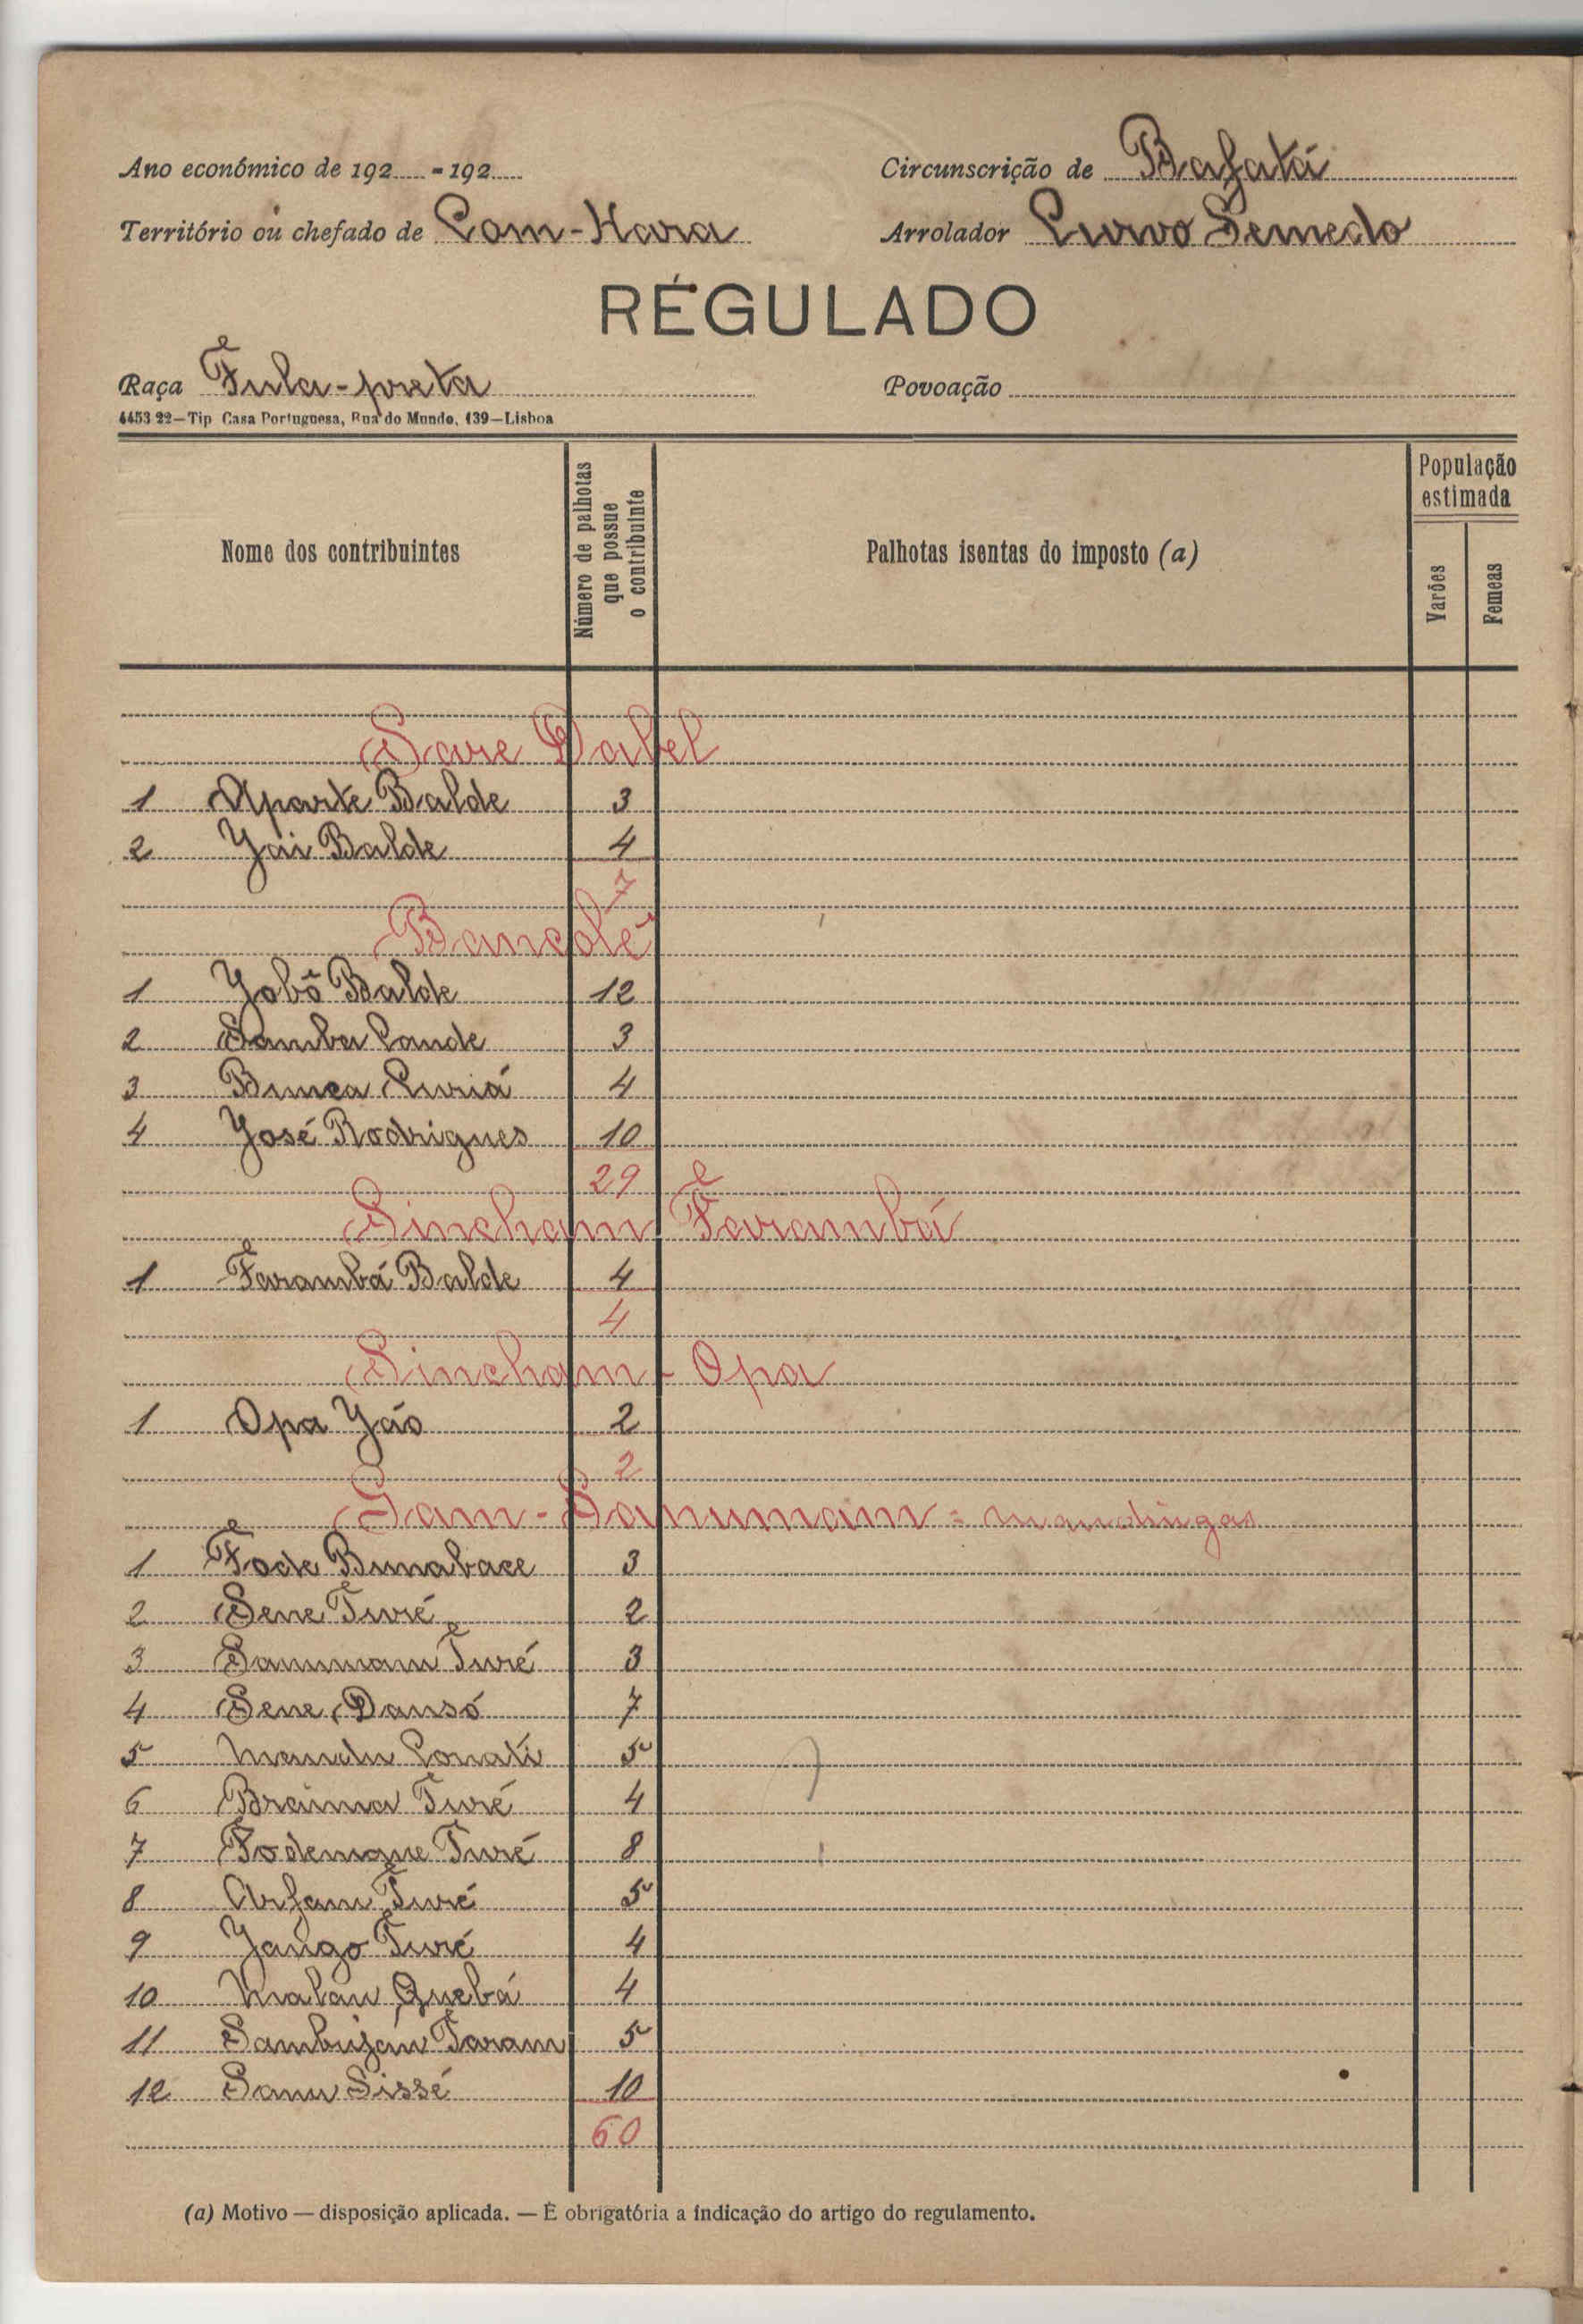 Ano económico de 192..... - 192.....
Circunscrição de Bafatá
Território ou chefado de Com-Hara
Arrolador Curvo Semedo
RÉGULADO
Raça Fula-preta
Povoação
4453 22—Tip Casa Portuguesa, Rua do Mundo, 139—Lisboa
Nome dos contribuintes
Número de palhotas que possue o contribuinte
Palhotas isentas do imposto (a)
População estimada
Varões
Femeas
Sare Dabel
1 Uparte Balde 3
2 Jai Balde 4
7
Bancolé
1 Jobô Balde 12
2 Samba Cande 3
3 Bunca Curiá 4
4 José Rodrigues 10
29
Sincham Farambá
1 Farambá Balde 4
4
Sincham - Opa
1 Opa Jáo 2
2
Gam-Sanumam = mandingas
1 Fode Bunabace 3
2 Sene Turé 2
3 Sanumam Turé 3
4 Sene Dansó 7
5 Mamadu Conati 5
6 Braima Turé 4
7 Fodemque Turé 8
8 Arfam Turé 5
9 Jango Turé 4
10 Malan Quebá 4
11 Sambujam Taram 5
12 Sanu Sissé 10
60
(a) Motivo — disposição aplicada. — É obrigatória a indicação do artigo do regulamento.